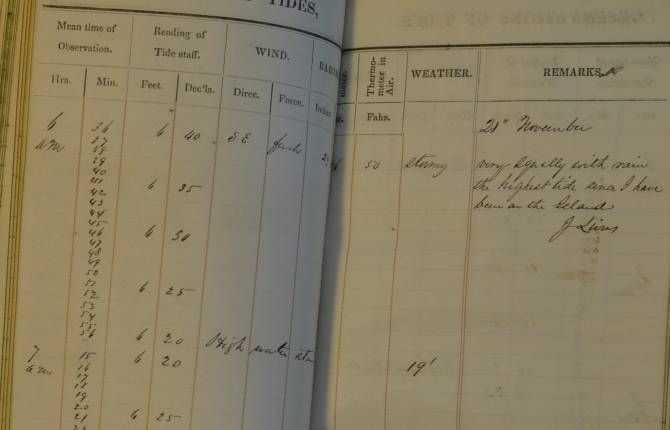 TIDES,
Mean time of Observation.
Reading of Tide staff.
WIND.
Hrs. Min. Feet. Dec'ls. Direc. Force. Inches
Thermo-meter in Air.
WEATHER.
REMARKS.
Fahs.
21st November
6 36 6 40 SE fresh 50 stormy very squally with rain
am 37
38
39
the highest tide since I have
40
41
been on the Island
42 6 35
43
J Lines
44
45
46 6 30
47
48
49
50
51
52 6 25
53
54
55
56 6 20 High water
7 15 6 20 19'
am 16
17
18
19
20
21 6 25